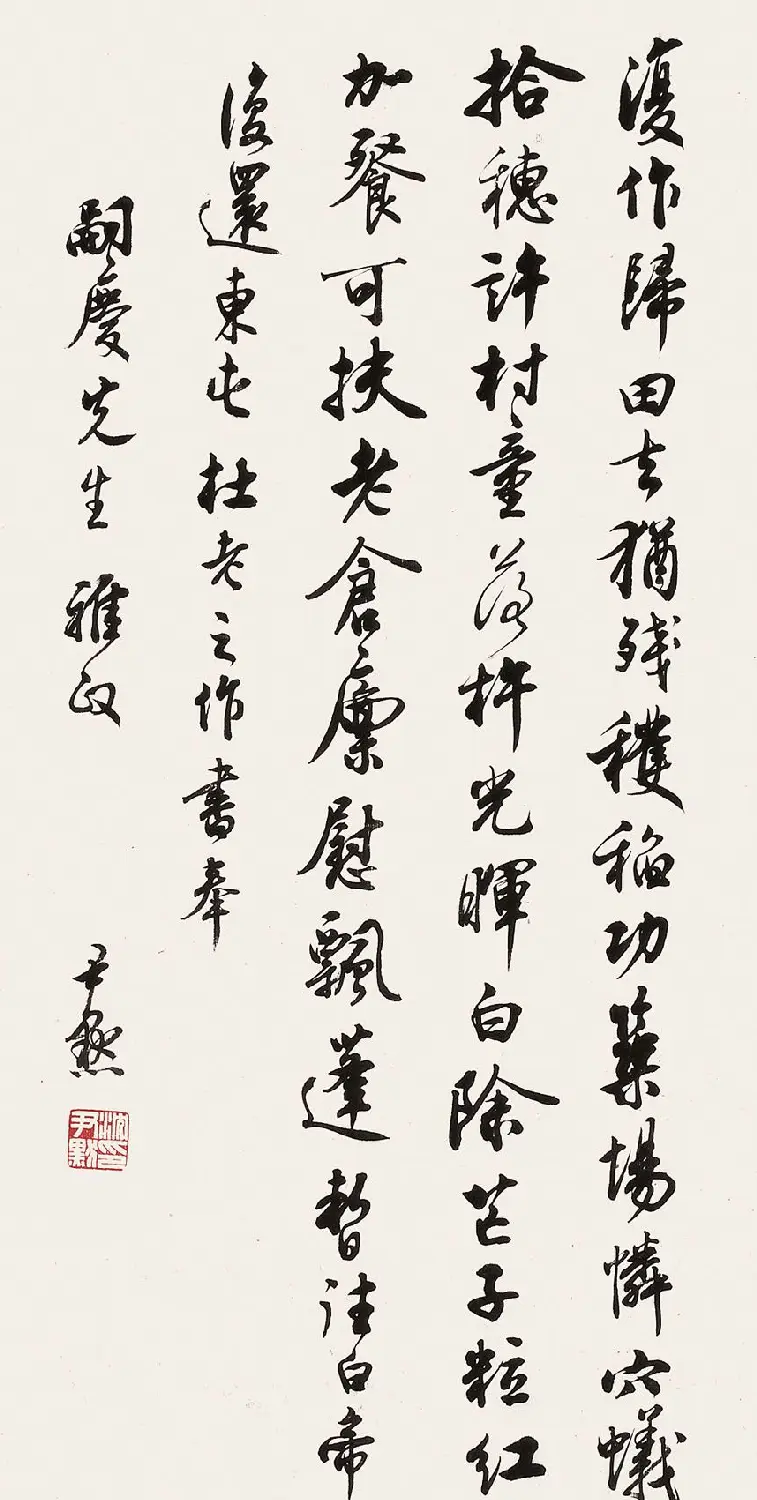 復作歸田去猶殘穫稻功築場憐穴蟻
拾穗許村童落杵光暉白除芒子粒紅
加餐可扶老倉廩慰飄蓬 暫往白帝
復還東屯杜老之作書奉
嗣慶先生雅政
尹默
沈尹默印